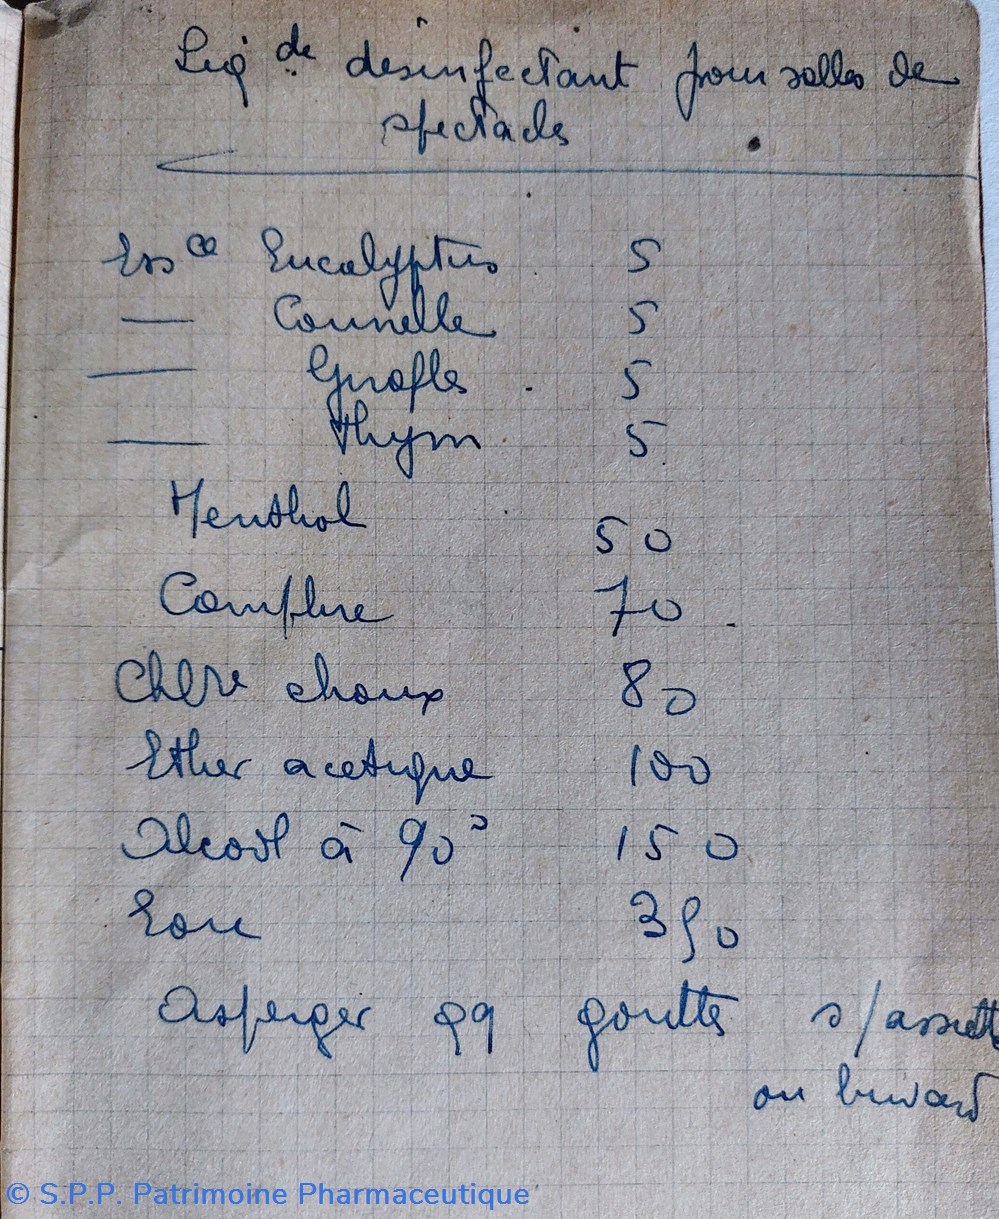 Liq de desinfectant pour salles de
spectacles
Essce Eucalyptus 5
— Cannelle 5
— Girofles 5
— Thym 5
Menthol 50
Camphre 70
Chlre chaux 80
Ether acetique 100
Alcool à 90° 150
Eau 350
Asperger qq gouttes s/assiette
ou buvard
© S.P.P. Patrimoine Pharmaceutique